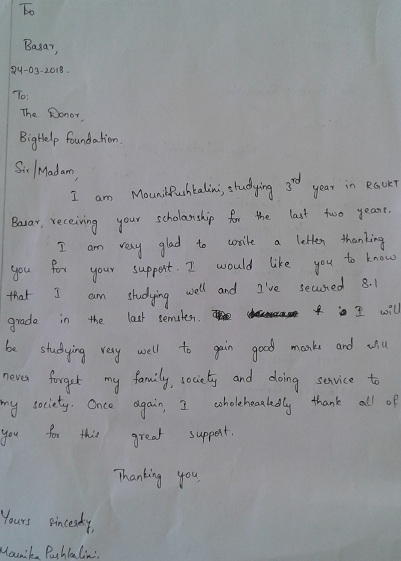 To
Basar,
24-03-2018.
To:
The Donor,
BigHelp Foundation.
Sir/Madam,
I am MounikPushkalini, studying 3rd year in RGUKT
Basar, receiving your scholarship for the last two years.
I am very glad to write a letter thanking
you for your support. I would like you to know
that I am studying well and I've secured 8.1
grade in the last semster. I will
be studying very well to gain good marks and will
never forget my family, society and doing service to
my society. Once again, I wholeheartedly thank all of
you for this great support.
Thanking you,
Yours sincerely,
Mounika Pushkalini.